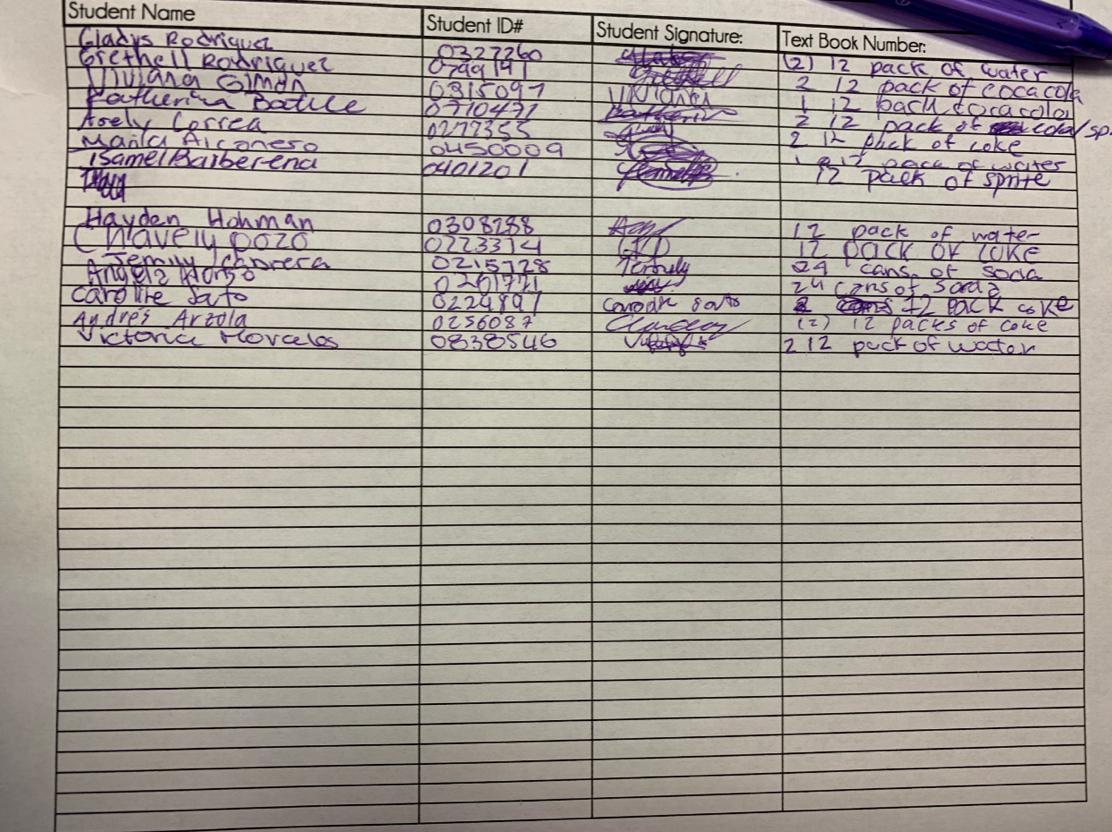 Student Name Student ID# Student Signature: Text Book Number:
Gladys Rodriguez 0327260 (2) 12 pack of water
Grethell Rodriguez 0799191 Grethell 2 12 pack of cocacola
Viviana 0315097 Viviana 1 12 pack cocacola
Katherina Batlle 0710471 2 12 pack of cola/sp
Arely Correa 0277355 2 12 pack of coke
0450009 12 pack of water
Isamel Barberena 0401201 12 pack of sprite
Hayden Hohman 0308288 12 pack of water
Chavely pozo 0223314 12 pack of coke
Jemily Cabrera 0215728 Jemily 24 cans of soda
0201771 24 cans of soda
Caroline Soto 0224897 Caroline Soto 12 pack coke
Andres Arzola 0256087 (2) 12 packs of coke
Victoria Morcelos 0838546 2 12 pack of water